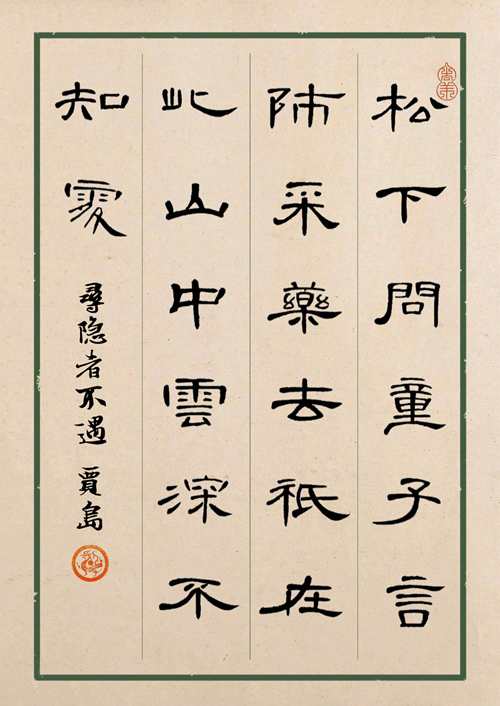 松下問童子言
師采藥去祇在
此山中雲深不
知處
尋隐者不遇 賈島